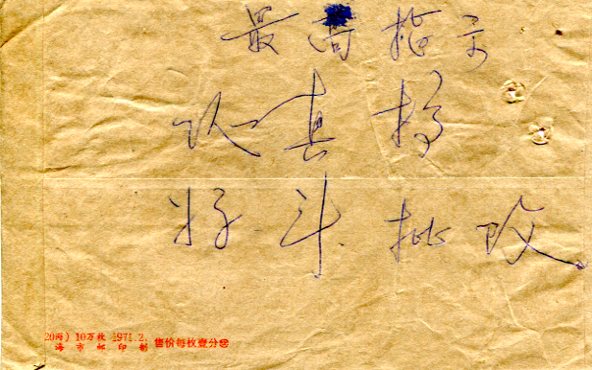 最高指示
认真搞
好斗.批改。
20海) 10万枚 1971.2. 售价每枚壹分
海市邮印制